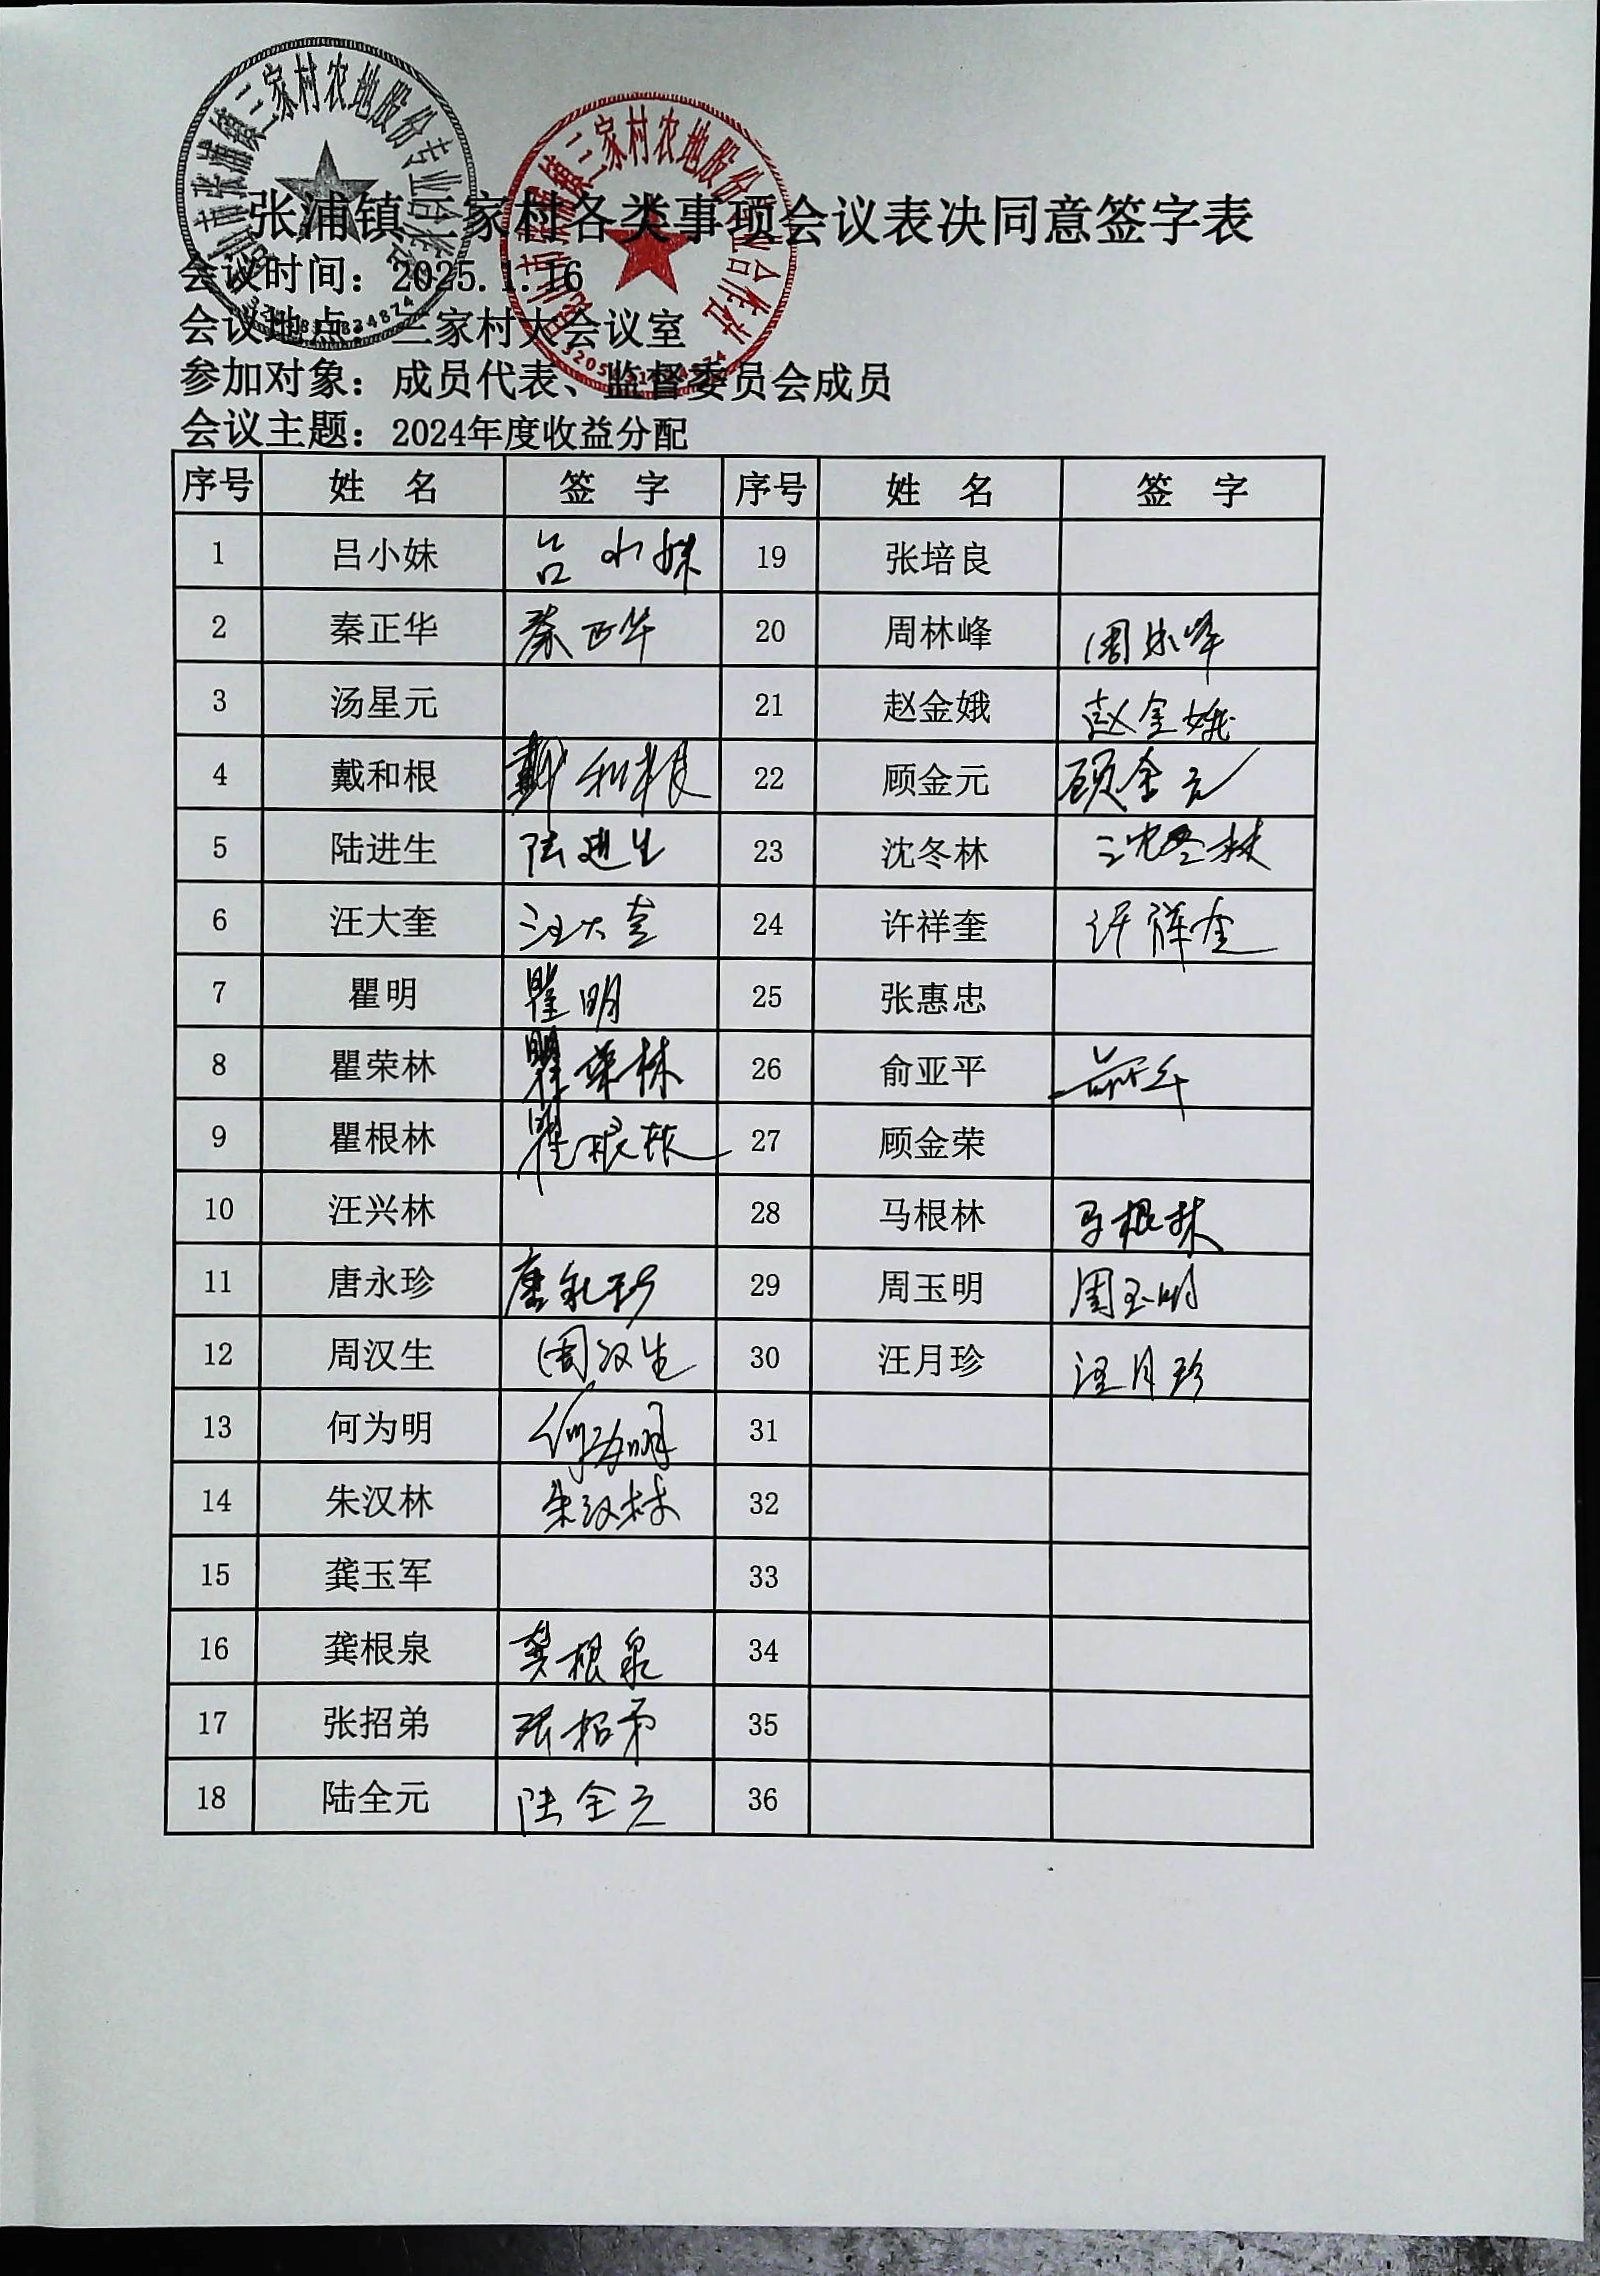 昆山市张浦镇三家村农地股份专业合作社
昆山市张浦镇三家村农地股份专业合作社
张浦镇三家村各类事项会议表决同意签字表
会议时间：2025.1.16
会议地点：三家村大会议室
参加对象：成员代表、监督委员会成员
会议主题：2024年度收益分配
序号 姓 名 签 字 序号 姓 名 签 字
1 吕小妹 吕小妹 19 张培良
2 秦正华 秦正华 20 周林峰 周林峰
3 汤星元 21 赵金娥 赵金娥
4 戴和根 戴和根 22 顾金元 顾金元
5 陆进生 陆进生 23 沈冬林 沈冬林
6 汪大奎 汪大奎 24 许祥奎 许祥奎
7 瞿明 瞿明 25 张惠忠
8 瞿荣林 瞿荣林 26 俞亚平
9 瞿根林 瞿根林 27 顾金荣
10 汪兴林 28 马根林 马根林
11 唐永珍 唐永珍 29 周玉明 周玉明
12 周汉生 周汉生 30 汪月珍 汪月珍
13 何为明 何为明 31
14 朱汉林 朱汉林 32
15 龚玉军 33
16 龚根泉 龚根泉 34
17 张招弟 张招弟 35
18 陆全元 陆全元 36